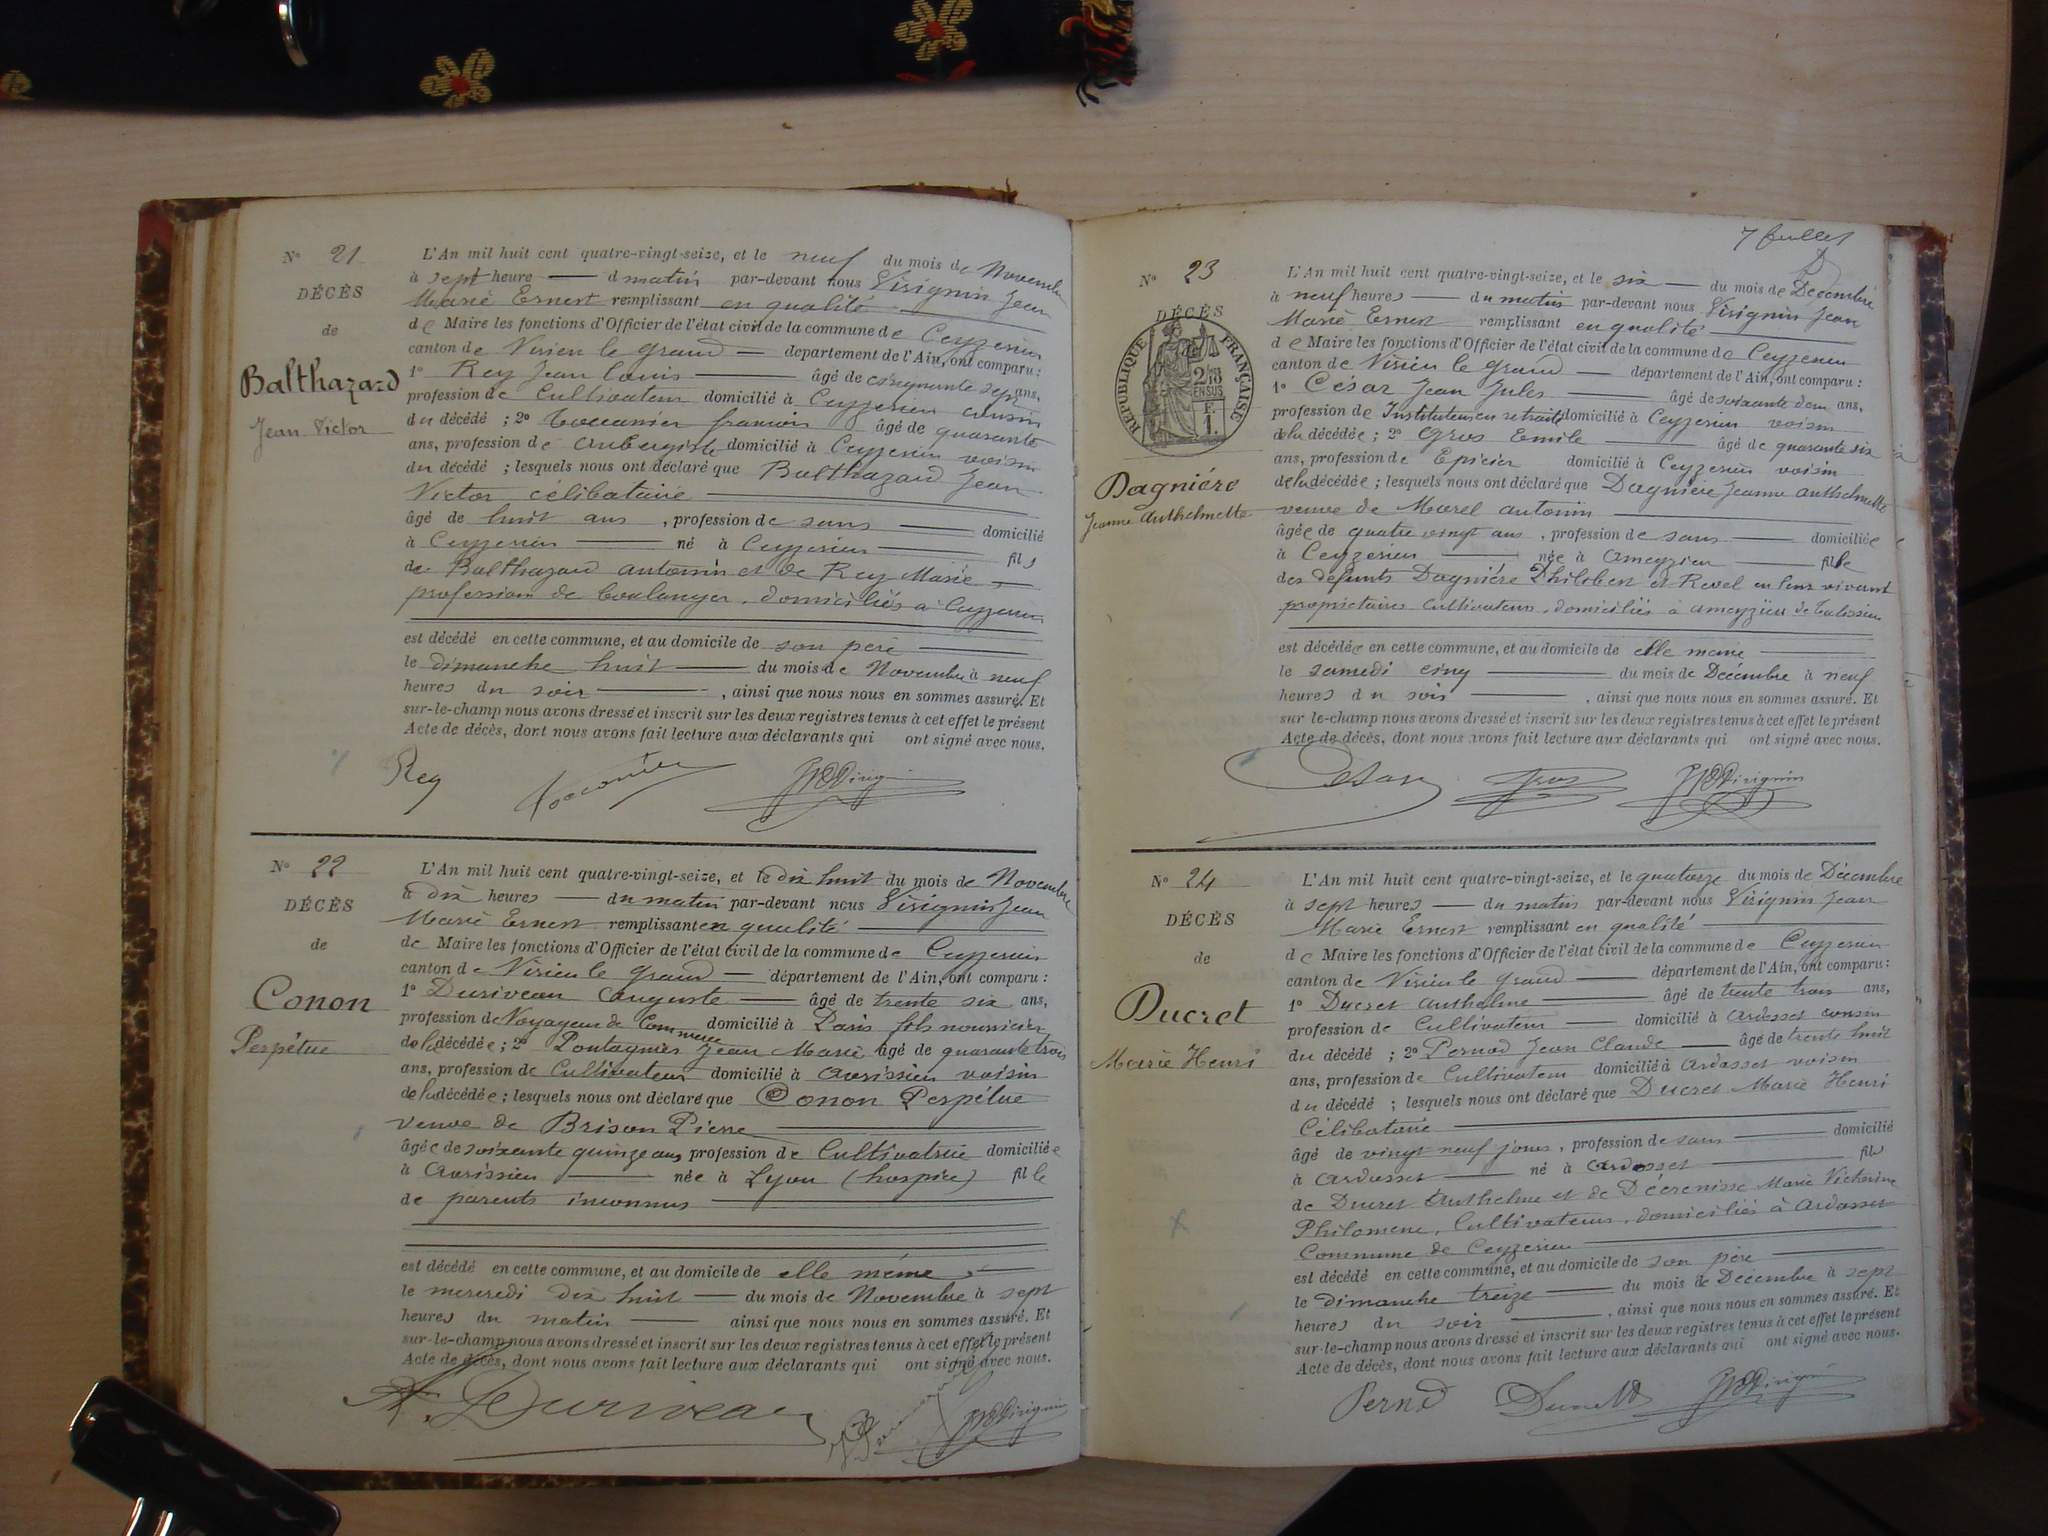 N° 21
DÉCÈS
de
Balthazard
Jean Victor
L'An mil huit cent quatre-vingt-seize, et le neuf du mois de Novembre
à sept heure — d matin par-devant nous Virignin Jean
Marie Ernest remplissant en qualité
de Maire les fonctions d'Officier de l'état civil de la commune de Ceyzerieu
canton de Virieu le grand — département de l'Ain, ont comparu :
1° Rey Jean Louis — âgé de cinquante sept ans,
profession de Cultivateur domicilié à Ceyzerieu cousin
du décédé ; 2° Toccanier françois âgé de quarante
ans, profession de aubergiste domicilié à Ceyzerieu voisin
du décédé ; lesquels nous ont déclaré que Balthazard Jean
Victor célibataire
âgé de huit ans , profession de sans — domicilié
à Ceyzerieu — né à Ceyzerieu — fils
de Balthazard antonin et de Rey Marie
profession de boulanger, domiciliés à Ceyzerieu
est décédé en cette commune, et au domicile de son père
le dimanche huit — du mois de Novembre à neuf
heures du soir — , ainsi que nous nous en sommes assuré. Et
sur-le-champ nous avons dressé et inscrit sur les deux registres tenus à cet effet le présent
Acte de décès, dont nous avons fait lecture aux déclarants qui ont signé avec nous.
Rey Toccanier JME Virignin
N° 22
DÉCÈS
de
Conon
Perpétue
L'An mil huit cent quatre-vingt-seize, et le dix huit du mois de Novembre
à dix heures — du matin par-devant nous Virignin Jean
Marie Ernest remplissant en qualité
de Maire les fonctions d'Officier de l'état civil de la commune de Ceyzerieu
canton de Virieu le grand — département de l'Ain, ont comparu :
1° Duriveau Auguste — âgé de trente six ans,
profession de Voyageur de Commerce domicilié à Paris fils nourricier
de la décédée ; 2° Pontagnier Jean Marie âgé de quarante trois
ans, profession de Cultivateur domicilié à avrissieu voisin
de la décédée ; lesquels nous ont déclaré que Conon Perpétue
veuve de Brison Pierre
âgée de soixante quinze ans profession de Cultivatrice domiciliée
à Avrissieu — née à Lyon (hospice) fille
de parents inconnus
est décédé en cette commune, et au domicile de elle même
le mercredi dix huit — du mois de Novembre à sept
heures du matin — ainsi que nous nous en sommes assuré. Et
sur-le-champ nous avons dressé et inscrit sur les deux registres tenus à cet effet le présent
Acte de décès, dont nous avons fait lecture aux déclarants qui ont signé avec nous.
A. Duriveau JME Virignin
7 feuillet
N° 23
DÉCÈS
RÉPUBLIQUE FRANÇAISE
Dagnière
Jeanne Anthelmette
L'An mil huit cent quatre-vingt-seize, et le six — du mois de Décembre
à neuf heures — du matin par-devant nous Virignin Jean
Marie Ernest remplissant en qualité
de Maire les fonctions d'Officier de l'état civil de la commune de Ceyzerieu
canton de Virieu le grand — département de l'Ain, ont comparu :
1° César Jean Jules — âgé de soixante deux ans,
profession de Instituteur en retraite domicilié à Ceyzerieu voisin
de la décédée ; 2° Gros Emile — âgé de quarante six
ans, profession de Epicier domicilié à Ceyzerieu voisin
de la décédée ; lesquels nous ont déclaré que Dagnière Jeanne anthelmette
veuve de Marel antonin
âgée de quatre vingt ans , profession de sans — domiciliée
à Ceyzerieu — née à Ameyzieu — fille
des défunts Dagnière Philibert et Revel en leur vivant
propriétaires Cultivateurs, domiciliés à ameyzieu de Talissieu
est décédée en cette commune, et au domicile de elle même
le samedi cinq — du mois de Décembre à neuf
heures du soir — , ainsi que nous nous en sommes assuré. Et
sur le-champ nous avons dressé et inscrit sur les deux registres tenus à cet effet le présent
Acte de décès, dont nous avons fait lecture aux déclarants qui ont signé avec nous.
César Gros JME Virignin
N° 24
DÉCÈS
de
Ducret
Marie Henri
L'An mil huit cent quatre-vingt-seize, et le quatorze du mois de Décembre
à sept heures — du matin par-devant nous Virignin Jean
Marie Ernest remplissant en qualité
de Maire les fonctions d'Officier de l'état civil de la commune de Ceyzerieu
canton de Virieu le grand — département de l'Ain, ont comparu :
1° Ducret Anthelme — âgé de trente trois ans,
profession de Cultivateur — domicilié à Ardosset cousin
du décédé ; 2° Pernod Jean Claude — âgé de trente huit
ans, profession de Cultivateur domicilié à Ardosset voisin
du décédé ; lesquels nous ont déclaré que Ducret Marie Henri
Célibataire
âgé de vingt neuf jours, profession de sans — domicilié
à Ardosset — né à Ardosset — fils
de Ducret Anthelme et de Décrenisse Marie Victorine
Philomene, Cultivateurs, domiciliés à Ardosset
Commune de Ceyzerieu
est décédé en cette commune, et au domicile de son père
le dimanche treize — du mois de Décembre à sept
heures du soir — , ainsi que nous nous en sommes assuré. Et
sur-le-champ nous avons dressé et inscrit sur les deux registres tenus à cet effet le présent
Acte de décès, dont nous avons fait lecture aux déclarants qui ont signé avec nous.
Pernod Ducret JME Virignin